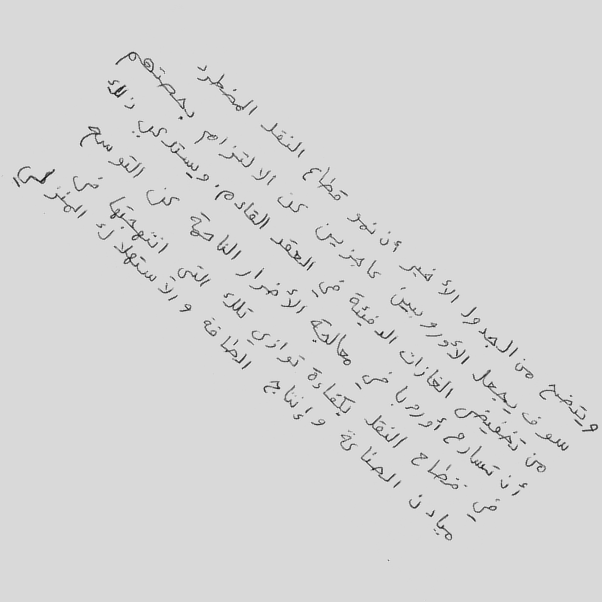 ويتضح من الجدول الأخير أن نمو قطاع النقل المضطرد
سوف يجعل الأوروبيين عاجزين عن الالتزام بحصتهم
من تخفيض الغازات الدفيئة في العقد القادم. ويستدعي ذلك
أن تسارع أوروبا في معالجة الأضرار الناجمة عن التوسع
في قطاع النقل بكفاءة توازي تلك التي انتهجتها في
ميادن الصناعة وإنتاج الطاقة والاستهلاك المنزلي